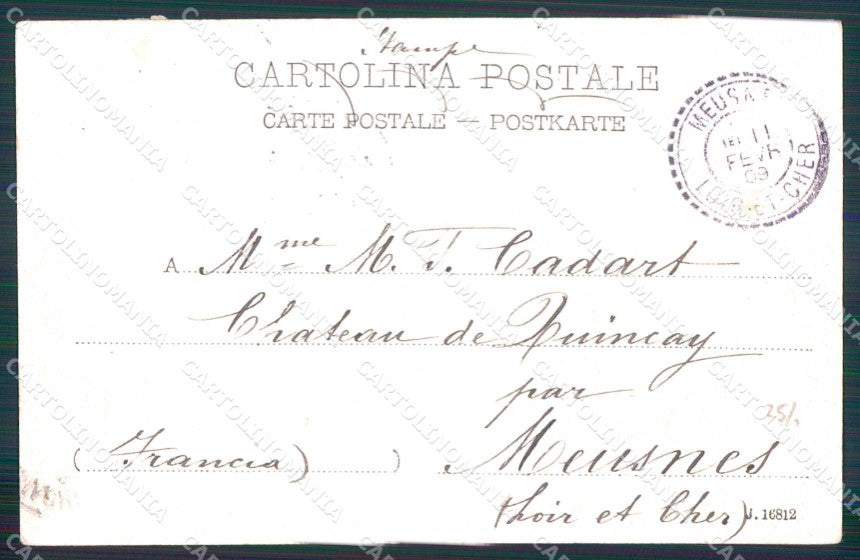 Stampe
CARTOLINA POSTALE
CARTE POSTALE — POSTKARTE
MEUSNES
11
FEVR
09
LOIR-ET-CHER
A Mme M. T. Cadart
Chateau de Quincay
par
25/.
(Francia) )
Meusnes
(Loir et Cher)
J. 16812
CARTOLINOMANIA